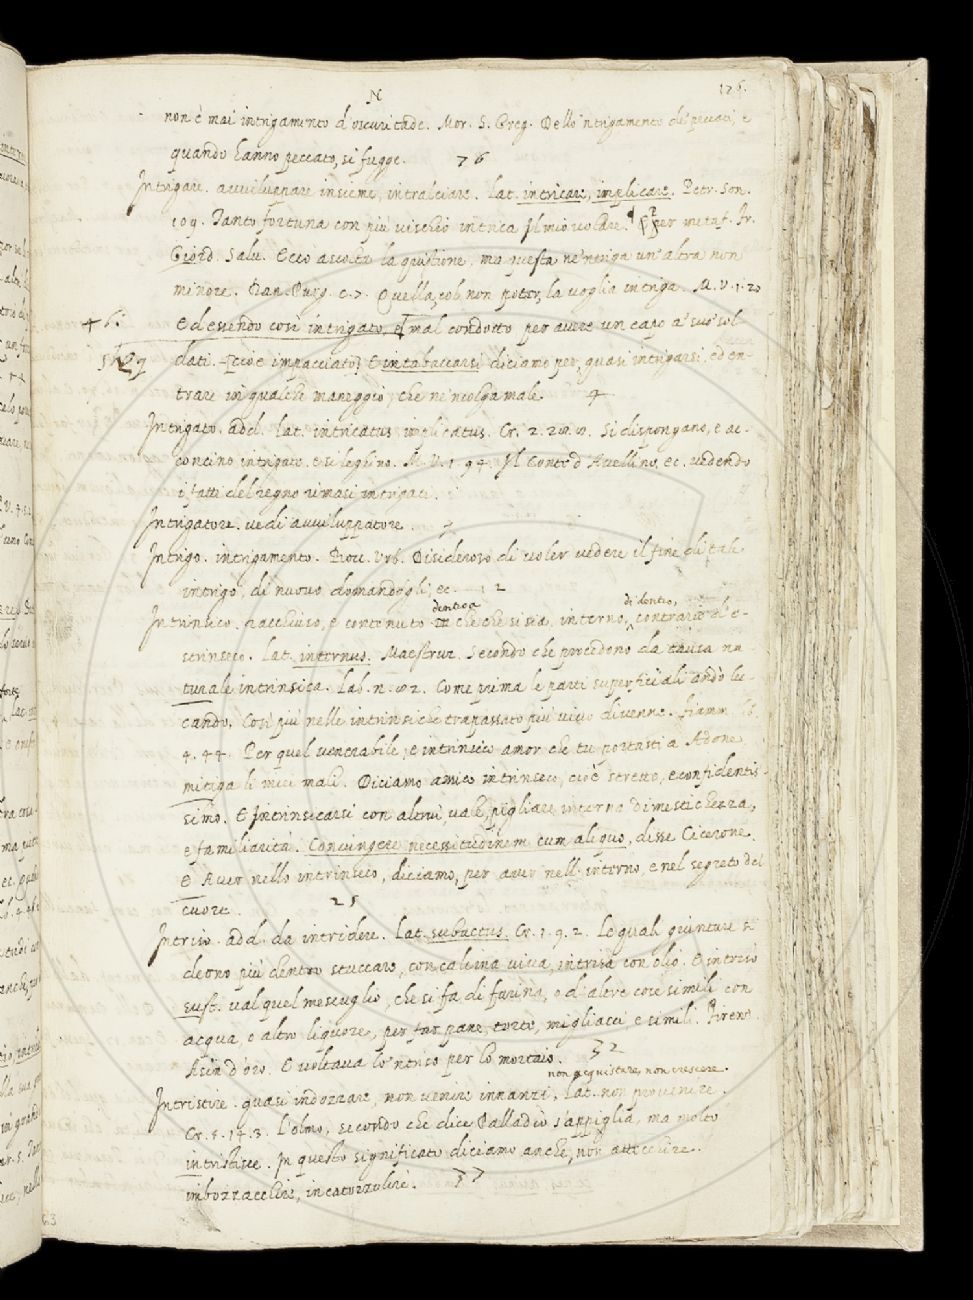 N 126.
non è mai intrigamento d'oscuritade. Mor. S. Greg. Dello 'ntrigamento de' peccati, e
quando hanno peccato, si fugge. 76
Intrigare. avviluppare insieme, intralciare. Lat. intricare, implicare. Petr. Son.
109. Tanto fortuna con più vischio intrica Il mio volare. ¶ Per metaf. Fr.
Giord. Salv. Ecco ascolta la quistione. ma questa ne 'ntriga un'altra non
minore. Dan. Purg. c. 7. Quella, col non poter, la voglia intriga. M. V. 1. 20
E dessendo così intrigato, e mal condotto per avere un capo a' suo' sol-
dati. [cioè impacciato] E intabaccarsi diciamo per, quasi intrigarsi, ed en-
trare in qualche maneggio, che ne 'ncolga male. 4
Intrigato. add. Lat. intricatus implicatus. Cr. 2. Si dispongano, e ac-
concino intrigato. e si leghino. M. V. 1. 94. Il Conte d'Avellino, ec. vedendo
i fatti del regno rimasi intrigati.
Intrigatore. vedi avviluppatore.
Intrigo. intrigamento. Prov. Urb. Disideroso di voler vedere il fine di tale
intrigo, di nuovo domandògli, ec. 12
dentro a di dentro,
Intrinseco. racchiuso, e contenuto in che che si sia. interno, contrario d'e-
strinseco. Lat. internus. Maestruz. Secondo che procedono da causa na-
turale intrinsica. Lab. n. Come prima le parti superficiali andò lec-
cando, Così più nelle intrinsiche trapassato più vivo divenne. Fiamm. lib.
4. 44. Per quel venerabile, e intrinseco amor che tu portasti a Adone,
mitiga li miei mali. Diciamo amico intrinseco, cioè stretto, e confidentis-
simo. E Intrinsicarsi con altrui, vale, pigliare interna dimestichezza,
e familiarità. Coniungere necessitudinem cum aliquo, disse Cicerone.
E Aver nello intrinseco, diciamo, per aver nell'interno, e nel segreto del
cuore. 25
Intriso. add. da intridere. Lat. subactus. Cr. 1. 9. 2. Le quali giunture si
deono più dentro stuccare, con calcina viva, intrisa con olio. E intriso
sust. val quel mescuglio, che si fa di farina, o d'altre cose simili con
acqua, o altro liquore, per far pane, torte, migliacci e simili. Firenz.
Asin d'oro. E voltava lo 'ntriso per lo mortaio. 32
non acquistare, non crescere.
Intristire. quasi indozzare, non venire innanzi, Lat. non provenire.
Cr. 5. 14. 3. L'olmo, secondo che dice Palladio s'appiglia, ma molto
intristisce. In questo significato diciamo anche, non attecchire.
imbozzacchire, incatorzolire. 37